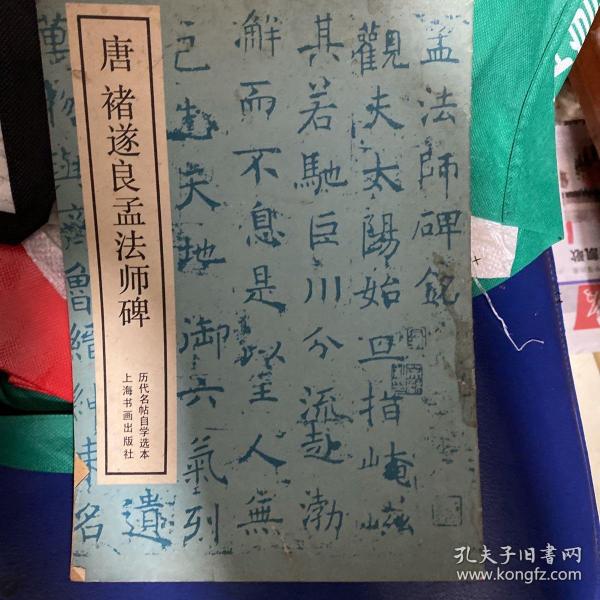 唐 褚遂良孟法师碑
历代名帖自学选本
上海书画出版社
孟法師碑銘
觀夫太陽始旦指崦嵫
其若馳巨川分流赴渤
澥而不息是以至人無
己先天地御六氣列
遺
萬物與齊魯縉紳東名
凯歌
孔夫子旧书网
www.kongfz.com